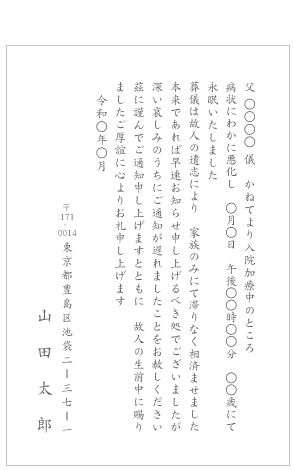 父 〇〇〇〇 儀 かねてより入院加療中のところ
病状にわかに悪化し 〇月〇日 午後〇〇時〇〇分 〇〇歳にて
永眠いたしました
葬儀は故人の遺志により 家族のみにて滞りなく相済ませました
本来であれば早速お知らせ申し上げるべき処でございましたが
深い哀しみのうちにご通知が遅れましたことをお赦しください
茲に謹んでご通知申し上げますとともに 故人の生前中に賜り
ましたご厚誼に心よりお礼申し上げます
令和〇年〇月
〒171-0014 東京都豊島区池袋二ー三七ー一
山田太郎